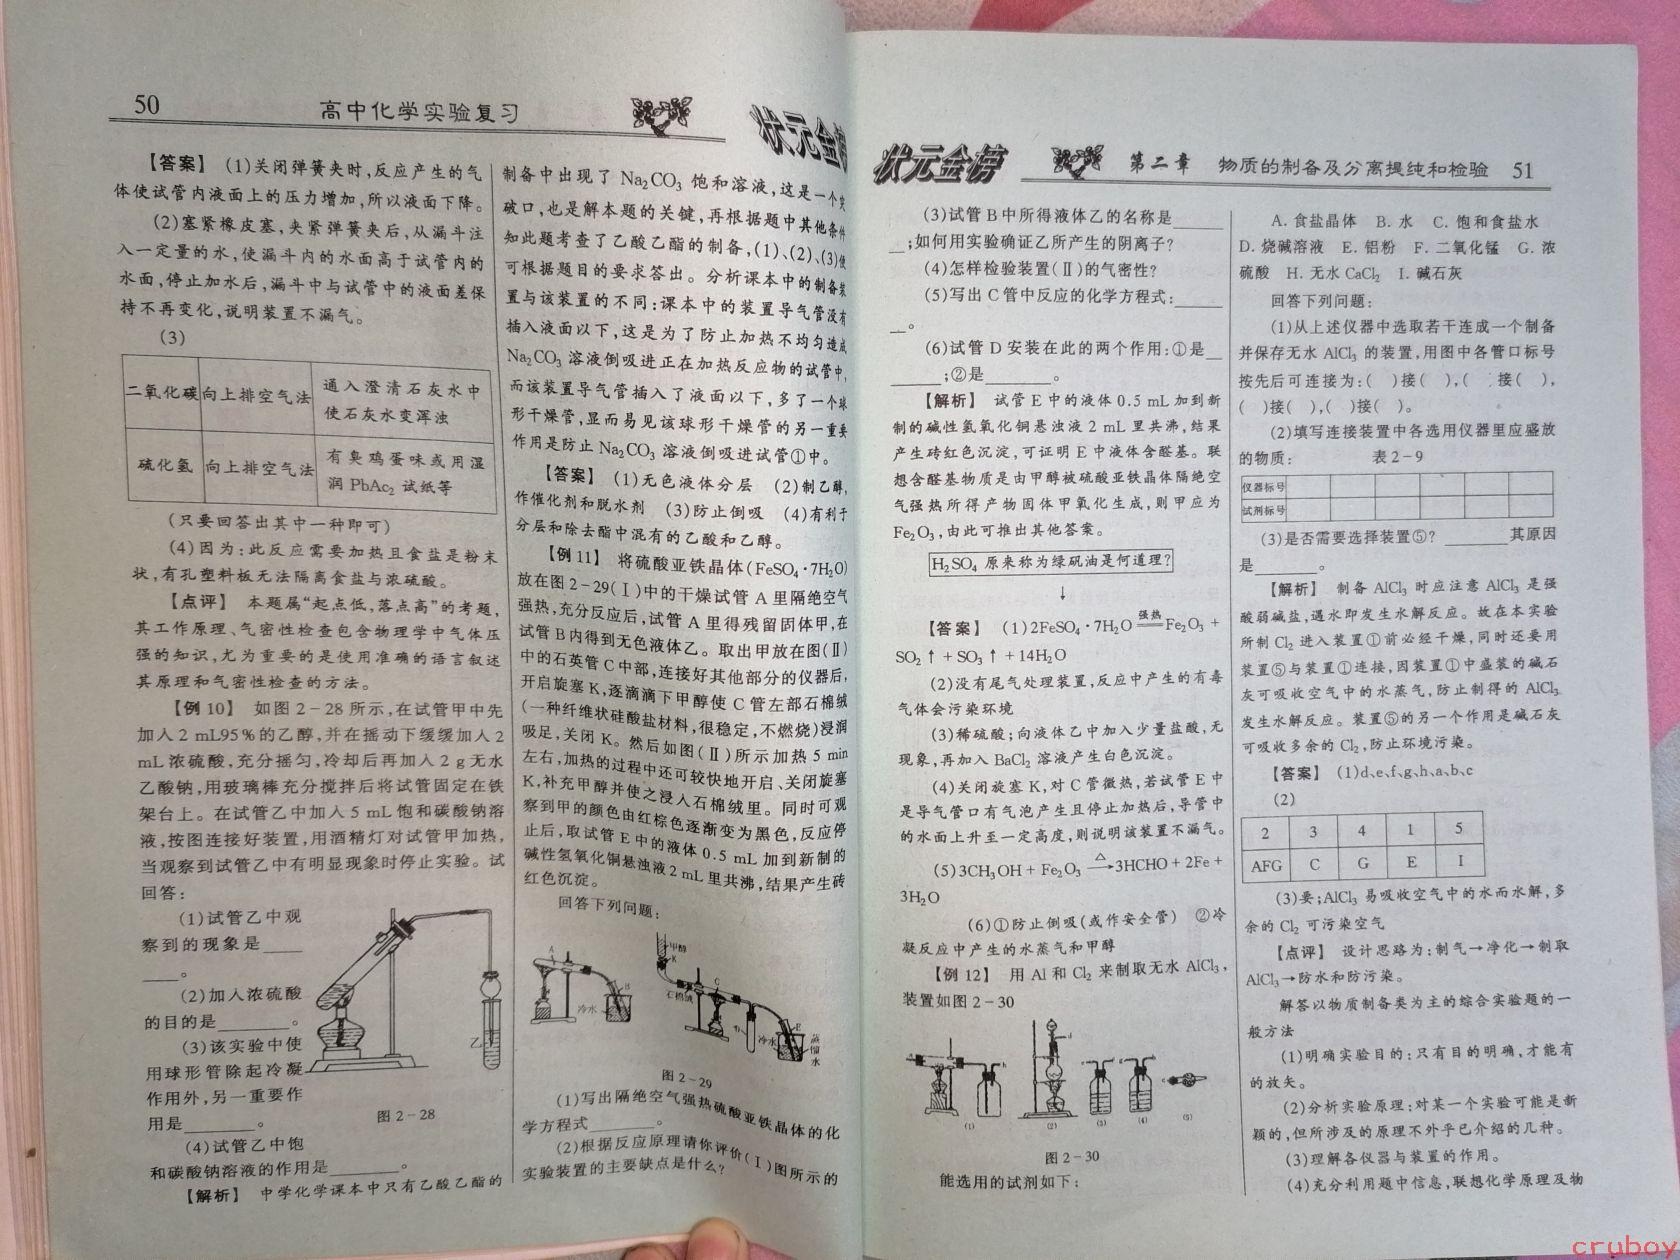 50
高中化学实验复习
状元金榜
【答案】 (1)关闭弹簧夹时,反应产生的气
体使试管内液面上的压力增加,所以液面下降。
(2)塞紧橡皮塞,夹紧弹簧夹后,从漏斗注
入一定量的水,使漏斗内的水面高于试管内的
水面,停止加水后,漏斗中与试管中的液面差保
持不再变化,说明装置不漏气。
(3)
二氧化碳 向上排空气法 通入澄清石灰水中
使石灰水变浑浊
硫化氢 向上排空气法 有臭鸡蛋味或用湿
润PbAc₂试纸等
(只要回答出其中一种即可)
(4)因为:此反应需要加热且食盐是粉末
状,有孔塑料板无法隔离食盐与浓硫酸。
【点评】 本题属“起点低,落点高”的考题,
其工作原理、气密性检查包含物理学中气体压
强的知识,尤为重要的是使用准确的语言叙述
其原理和气密性检查的方法。
【例10】 如图2-28所示,在试管甲中先
加入2 mL95%的乙醇,并在摇动下缓缓加入2
mL浓硫酸,充分摇匀,冷却后再加入2 g无水
乙酸钠,用玻璃棒充分搅拌后将试管固定在铁
架台上。在试管乙中加入5 mL饱和碳酸钠溶
液,按图连接好装置,用酒精灯对试管甲加热,
当观察到试管乙中有明显现象时停止实验。试
回答:
(1)试管乙中观
察到的现象是____
____。
(2)加入浓硫酸
的目的是________。
(3)该实验中使
用球形管除起冷凝
作用外,另一重要作
用是________。
(4)试管乙中饱
和碳酸钠溶液的作用是________。
乙
图2-28
【解析】 中学化学课本中只有乙酸乙酯的
制备中出现了Na₂CO₃饱和溶液,这是一个突
破口,也是解本题的关键,再根据题中其他条件
知此题考查了乙酸乙酯的制备,(1)、(2)、(3)便
可根据题目的要求答出。分析课本中的制备装
置与该装置的不同:课本中的装置导气管没有
插入液面以下,这是为了防止加热不均匀造成
Na₂CO₃溶液倒吸进正在加热反应物的试管中,
而该装置导气管插入了液面以下,多了一个球
形干燥管,显而易见该球形干燥管的另一重要
作用是防止Na₂CO₃溶液倒吸进试管①中。
【答案】 (1)无色液体分层 (2)制乙醇,
作催化剂和脱水剂 (3)防止倒吸 (4)有利于
分层和除去酯中混有的乙酸和乙醇。
【例11】 将硫酸亚铁晶体(FeSO₄·7H₂O)
放在图2-29(Ⅰ)中的干燥试管A里隔绝空气
强热,充分反应后,试管A里得残留固体甲,在
试管B内得到无色液体乙。取出甲放在图(Ⅱ)
中的石英管C中部,连接好其他部分的仪器后,
开启旋塞K,逐滴滴下甲醇使C管左部石棉绒
(一种纤维状硅酸盐材料,很稳定,不燃烧)浸润
吸足,关闭K。然后如图(Ⅱ)所示加热5 min
左右,加热的过程中还可较快地开启、关闭旋塞
K,补充甲醇并使之浸入石棉绒里。同时可观
察到甲的颜色由红棕色逐渐变为黑色,反应停
止后,取试管E中的液体0.5 mL加到新制的
碱性氢氧化铜悬浊液2 mL里共沸,结果产生砖
红色沉淀。
回答下列问题:
A
B
冷水
甲醇
K
石棉绒
C
D
冷水
E
蒸馏水
图2-29
(1)写出隔绝空气强热硫酸亚铁晶体的化
学方程式________。
(2)根据反应原理请你评价(Ⅰ)图所示的
实验装置的主要缺点是什么?
状元金榜
第二章 物质的制备及分离提纯和检验 51
(3)试管B中所得液体乙的名称是______
__;如何用实验确证乙所产生的阴离子?
(4)怎样检验装置(Ⅱ)的气密性?
(5)写出C管中反应的化学方程式:______
__。
(6)试管D安装在此的两个作用:①是__
______;②是________。
【解析】 试管E中的液体0.5 mL加到新
制的碱性氢氧化铜悬浊液2 mL里共沸,结果
产生砖红色沉淀,可证明E中液体含醛基。联
想含醛基物质是由甲醇被硫酸亚铁晶体隔绝空
气强热所得产物固体甲氧化生成,则甲应为
Fe₂O₃,由此可推出其他答案。
H₂SO₄原来称为绿矾油是何道理?
↓
【答案】 (1)2FeSO₄·7H₂O 强热══ Fe₂O₃+
SO₂↑+SO₃↑+14H₂O
(2)没有尾气处理装置,反应中产生的有毒
气体会污染环境
(3)稀硫酸;向液体乙中加入少量盐酸,无
现象,再加入BaCl₂溶液产生白色沉淀。
(4)关闭旋塞K,对C管微热,若试管E中
是导气管口有气泡产生且停止加热后,导管中
的水面上升至一定高度,则说明该装置不漏气。
(5)3CH₃OH+Fe₂O₃ △→3HCHO+2Fe+
3H₂O
(6)①防止倒吸(或作安全管) ②冷
凝反应中产生的水蒸气和甲醇
【例12】 用Al和Cl₂来制取无水AlCl₃,
装置如图2-30
(1) (2) (3) (4) (5)
图2-30
能选用的试剂如下:
A.食盐晶体 B.水 C.饱和食盐水
D.烧碱溶液 E.铝粉 F.二氧化锰 G.浓
硫酸 H.无水CaCl₂ I.碱石灰
回答下列问题:
(1)从上述仪器中选取若干连成一个制备
并保存无水AlCl₃的装置,用图中各管口标号
按先后可连接为:( )接( ),( 接( ),
( )接( ),( )接( )。
(2)填写连接装置中各选用仪器里应盛放
的物质: 表2-9
仪器标号
试剂标号
(3)是否需要选择装置⑤?________其原因
是________。
【解析】 制备AlCl₃时应注意AlCl₃是强
酸弱碱盐,遇水即发生水解反应。故在本实验
所制Cl₂进入装置①前必经干燥,同时还要用
装置⑤与装置①连接,因装置①中盛装的碱石
灰可吸收空气中的水蒸气,防止制得的AlCl₃
发生水解反应。装置⑤的另一个作用是碱石灰
可吸收多余的Cl₂,防止环境污染。
【答案】 (1)d、e、f、g、h、a、b、c
(2)
2 3 4 1 5
AFG C G E I
(3)要;AlCl₃易吸收空气中的水而水解,多
余的Cl₂可污染空气
【点评】 设计思路为:制气→净化→制取
AlCl₃→防水和防污染。
解答以物质制备类为主的综合实验题的一
般方法
(1)明确实验目的:只有目的明确,才能有
的放矢。
(2)分析实验原理:对某一个实验可能是新
颖的,但所涉及的原理不外乎已介绍的几种。
(3)理解各仪器与装置的作用。
(4)充分利用题中信息,联想化学原理及物
cruboy